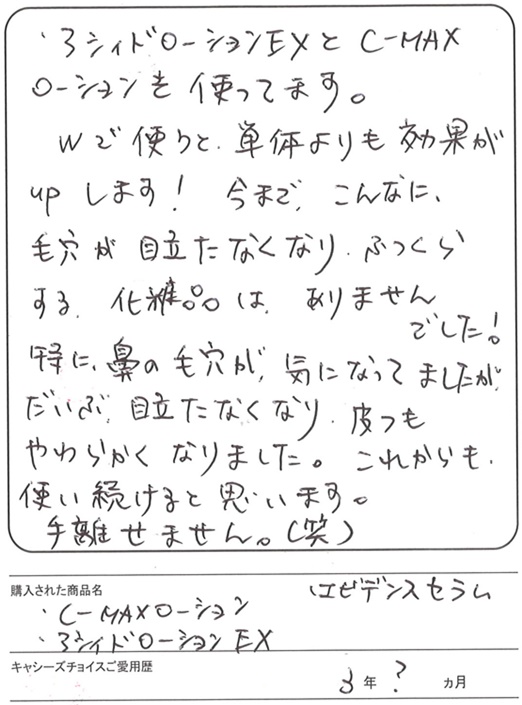 ・3シィドローションEXと C-MAX
ローションを使ってます。
Wで使うと、単体よりも効果が
up します! 今まで、こんなに、
毛穴が目立たなくなり、ふっくら
する、化粧品は、ありません
でした!
特に、鼻の毛穴が、気になってましたが、
だいぶ、目立たなくなり、皮フも
やわらかくなりました。これからも、
使い続けると思います。
手離せません。(笑)
購入された商品名
・C-MAXローション
・エビデンスセラム
・3シィドローションEX
キャシーズチョイスご愛用歴
3年 ? ヵ月